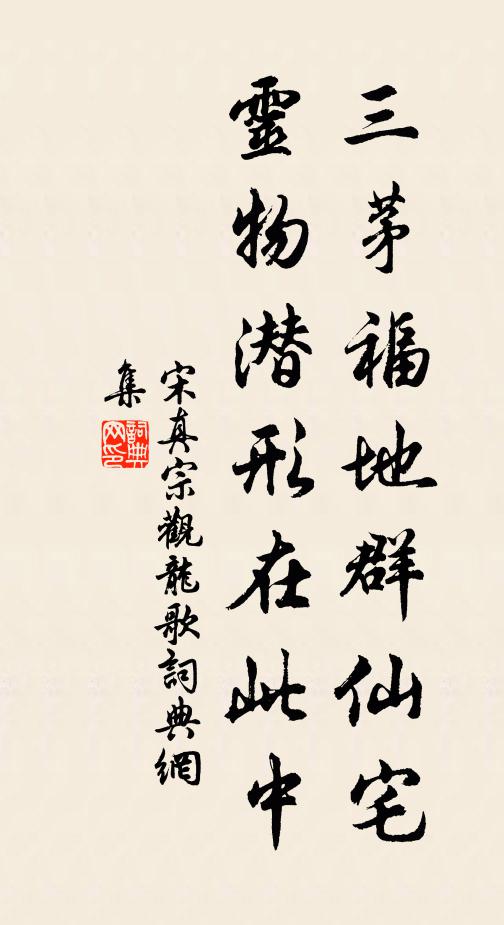 三茅福地群仙宅
靈物潛形在此中
宋真宗觀龍歌詞典網
集
詞典
网印